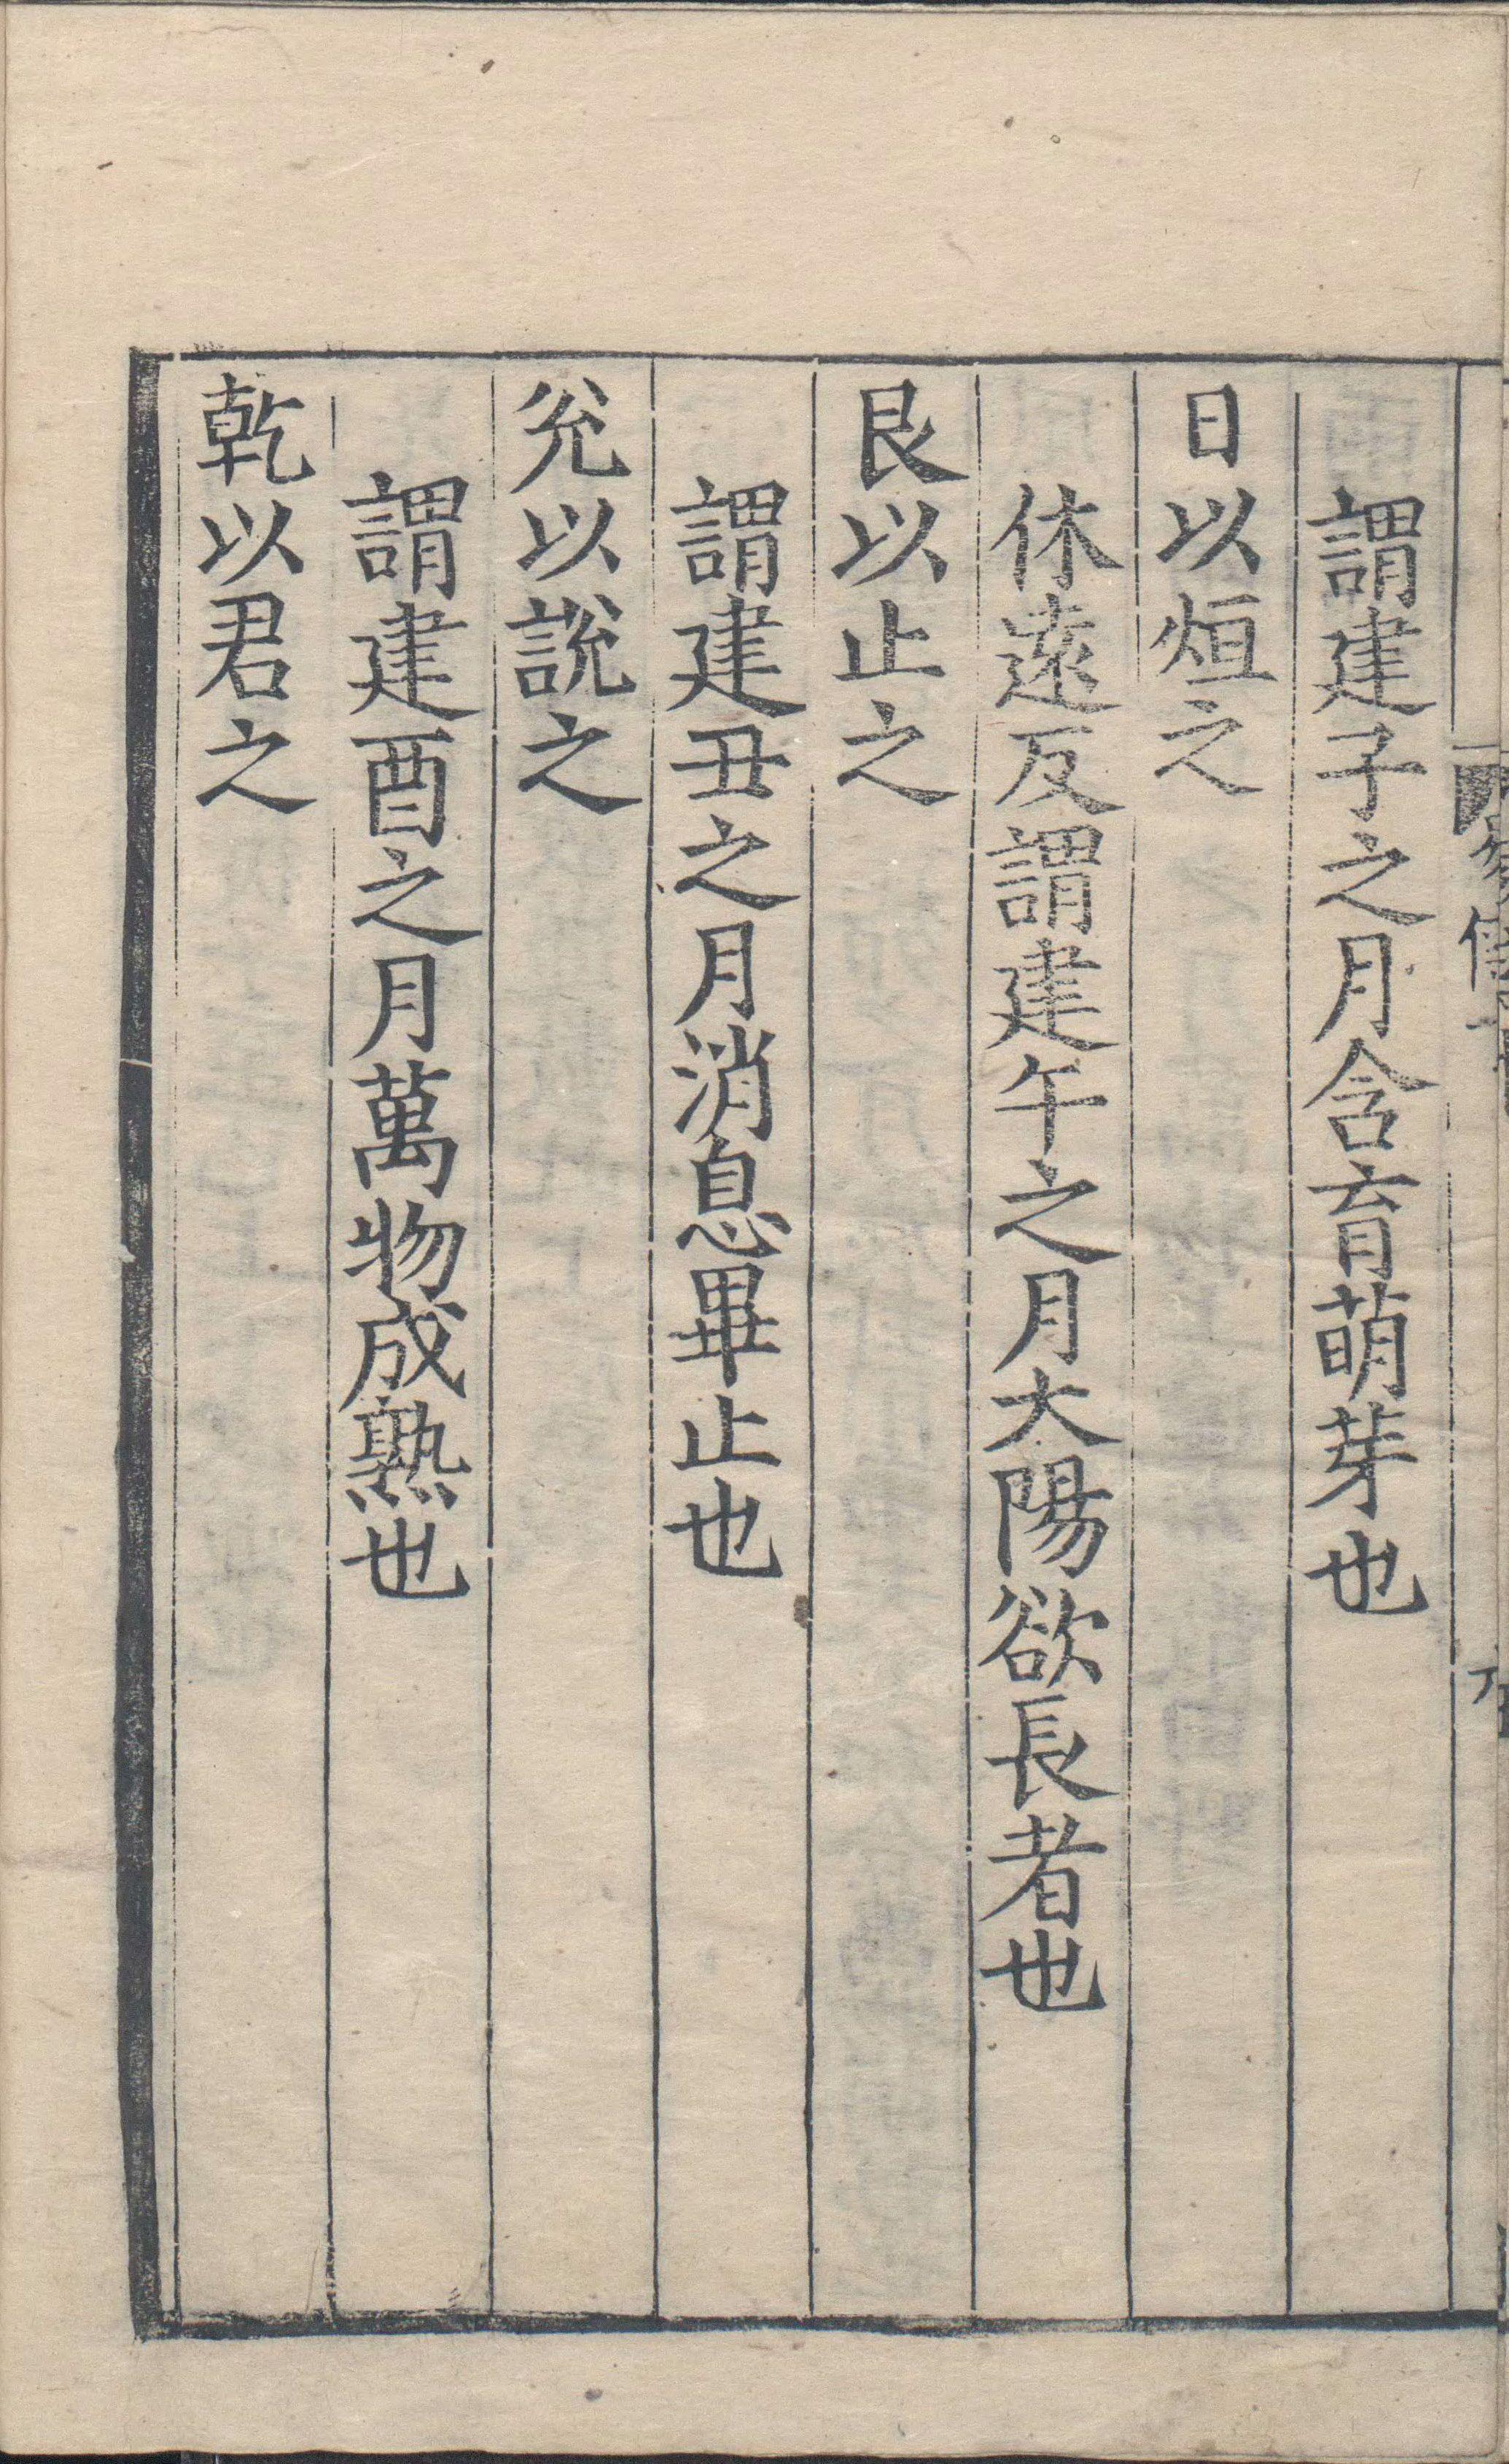 謂建子之月含育萌芽也
日以烜之
休遠反謂建午之月大陽欲長者也
艮以止之
謂建丑之月消息畢止也
兊以說之
謂建酉之月萬物成熟也
乾以君之